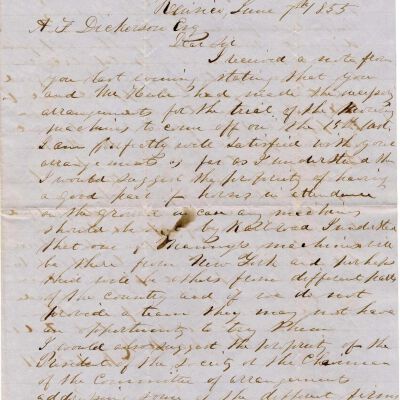 June 7th 1855
A F Dickerson Esq
Dear Sir
I received a note from
you last evening stating that you
and Mr Hale had made the necessary
arrangements for the trial of the Mowing
machines to come off on the 15th inst.
I am perfectly well satisfied with your
arrangements as far as I understand them
I would suggest the propriety of having
a good pair of horses in attendance
on the ground in case any machines
should be by Rail Road I understand
that one of Mannys machines will
be there from New York and perhaps
there will be others from different parts
of the country and if we do not
provide a team they may not have
an opportunity to try them
I would also suggest the propriety of the
President of the Society or the Chairman
of the Committee of arrangements
some of the different firms